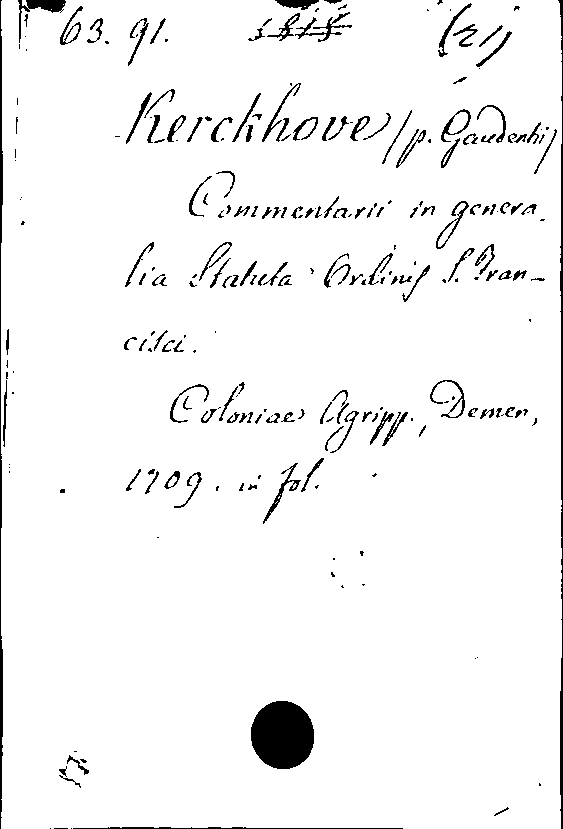 63. 91. (21)
Kerckhove (p. Gaudentii)
Commentarii in genera-
lia Statuta Ordinis S. Fran-
cisci.
Coloniae Agripp., Demen,
1709. in fol.